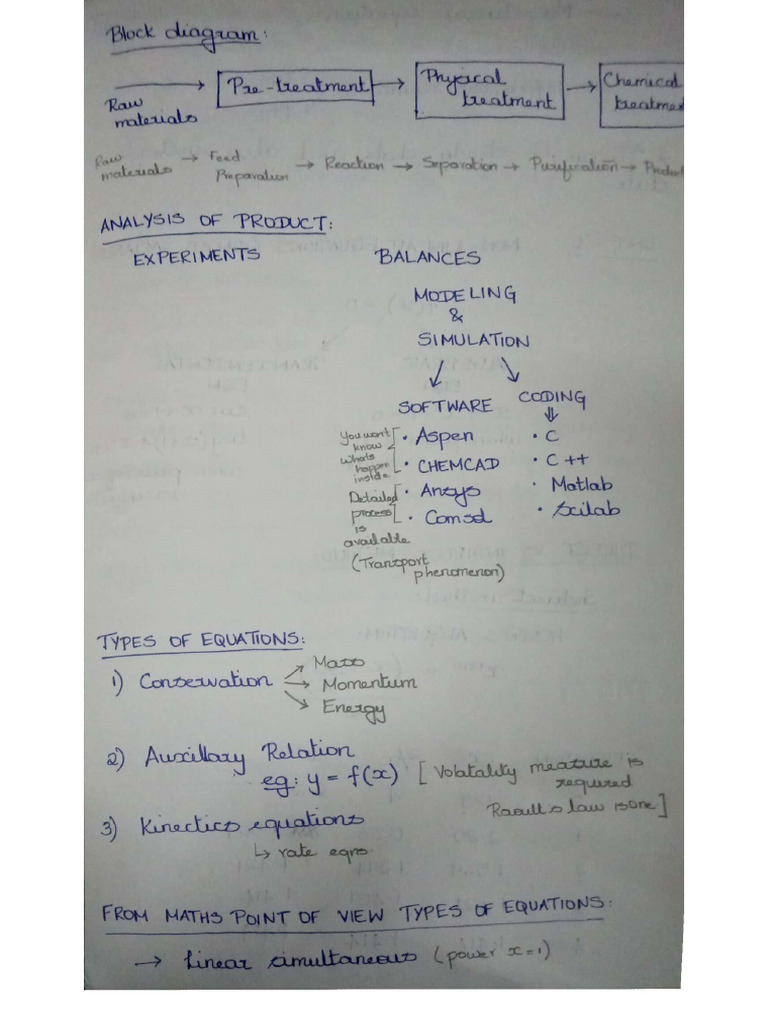 Block diagram:
Raw materials → Pre-treatment → Physical treatment → Chemical treatmen
Raw materials → Feed Preparation → Reaction → Separation → Purification → Produ
ANALYSIS OF PRODUCT:
EXPERIMENTS BALANCES
MODELING
&
SIMULATION
SOFTWARE CODING
You won't know whats happen inside
• Aspen • C
• CHEMCAD • C++
Detailed process is available
• Ansys • Matlab
• Comsol • Scilab
(Transport phenomenon)
TYPES OF EQUATIONS:
1) Conservation
Mass
Momentum
Energy
2) Auxillary Relation
eg: y = f(x) [Volatality measure is required
Raoult's law is one]
3) Kinectics equations
↳ rate eqns
FROM MATHS POINT OF VIEW TYPES OF EQUATIONS:
→ Linear simultaneous (power x=1)